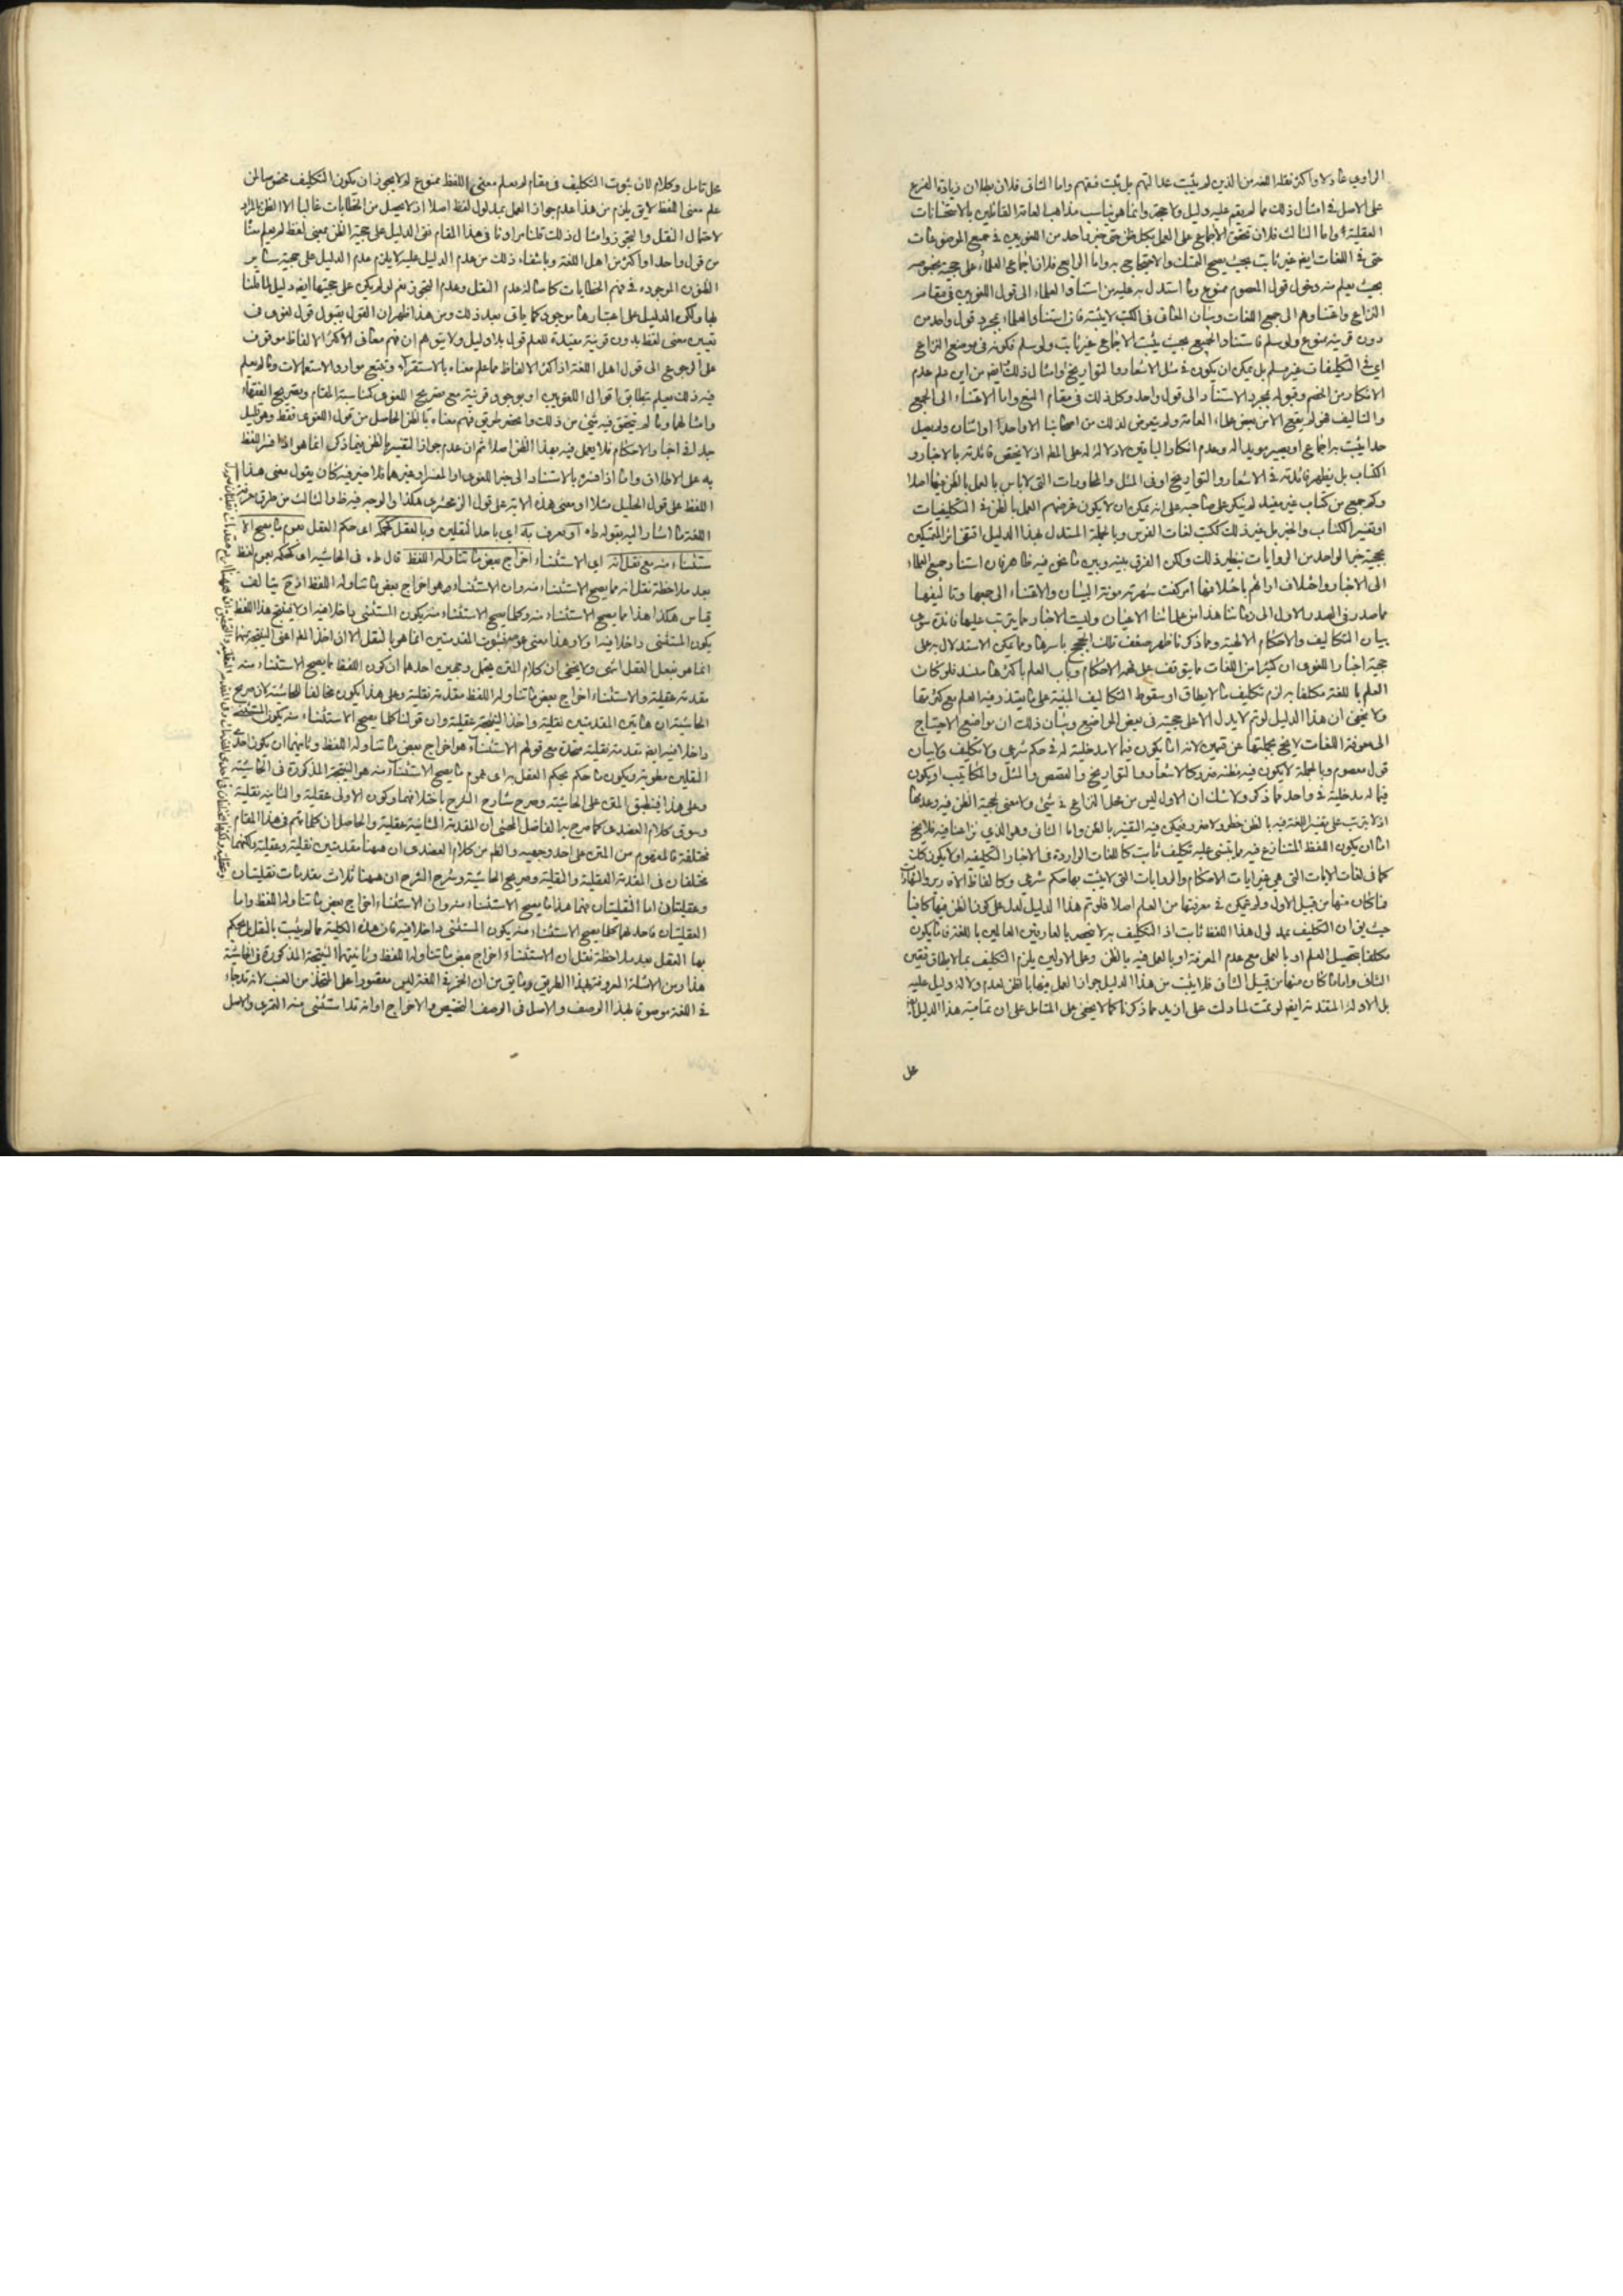 الراوي عادلا واكثر نقلة اللغة من الذين لم يثبت عدالتهم بل ثبت فسقهم واما الثاني فلان بطلان زيادة الفرع
على الاصل في امثال ذلك مما لم يقم عليه دليل ولا حجة وانما هو يناسب مذاهب العامة القائلين بالاستحسانات
العقلية واما الثالث فلان تحقق الاجماع على العمل بكل ظن حتى خبر واحد من اللغويين في جميع الموضوعات
حتى في اللغات ايضا غير ثابت بحيث يصح التمسك والاحتجاج به واما الرابع فلان اجماع العلماء على حجية بخصوصه
بحيث يعلم منه دخول قول المعصوم ممنوع وما استدل به عليه من استناد العلماء الى قول اللغويين في مقام
النزاع واعتناؤهم الى جمع اللغات وبيان المعاني في الكتب لا يثبته فان استناد العلماء بمجرد قول واحد من
دون قرينة ممنوع ولو سلم فاستناد الجميع بحيث يثبت الاجماع غير ثابت ولو سلم فكونه في موضع النزاع
اي في التكليفات غير مسلم بل يمكن ان يكون في مثل الاشعار والتواريخ وامثال ذلك من اين علم عدم
الانكار من الخصم وقبوله بمجرد الاستناد الى قول واحد وكل ذلك في مقام المنع واما الاعتناء الى الجمع
والتاليف فهو لم يقع الا من بعض علماء العامة ولم يتعرض لذلك من اصحابنا الا واحد او اثنان ولم يصل
حدا يثبت به اجماع او يصير مويدا له وعدم انكار الباقين لا دلالة له على المط اذ لا يختص فائدته بالاخبار و
الكتاب بل يظهر فائدته في الاشعار والتواريخ او في المثل والمحاورات التي لا باس بالعمل بالظن فيها اصلا
وكم جمع من كتاب غير مفيد لم ينكر على صاحبه على انه يمكن ان لا يكون غرضهم العمل بالظن في التكليفات
او تفسير الكتاب والخبر بل غير ذلك ككتب لغات الفرس وبالجملة المستدل بهذا الدليل اقتفى اثر المتمسكين
بحجية خبر الواحد من الروايات بنظير ذلك ولكن الفرق بينه وبين ما نحن فيه ظاهر فان استناد جميع العلماء
الى الاخبار واختلاف ارائهم باختلافها امر كفت شهرته مونة البيان والاعتناء الى جمعها وتاليفها
مما صدر في الصدر الاول الى زماننا هذا من علمائنا الاعيان وليست الاخبار مما يترتب عليها فائدة سوى
بيان التكاليف والاحكام الالهية ومما ذكرنا ظهر ضعف تلك الحجج باسرها ومما يمكن الاستدلال به على
حجية اخبار اللغوي ان كثيرا من اللغات مما يتوقف على فهم الاحكام وباب العلم باكثرها منسد فلو كان
العلم باللغة مكلفا به لزم تكليف ما لا يطاق او سقوط التكاليف المبنية على ما يتعذر فيه العلم مع كثرتها
ولا يخفى ان هذا الدليل لو تم لا يدل الا على حجيته في بعض المواضع وبيان ذلك ان مواضع الاحتياج
الى معرفة اللغات لا يخ بجملتها عن قسمين لانه اما يكون فيما لا مدخلية له في حكم شرعي ولا تكليف ولا بيان
قول معصوم وبالجملة لا يكون فيه مظنة ضرر كالاشعار والتواريخ والقصص والمثل والمكاتيب او يكون
فيما له مدخلية في واحد مما ذكر ولا شك ان الاول ليس من محل النزاع في شيء ولا معنى لحجية الظن فيه وعدمها
اذ لا يترتب على تفسير اللغة فيه بالظن خطر ولا ضرر فيمكن فيه التفسير بالظن واما الثاني وهو الذي نزاعنا فيه فلا يخ
اما ان يكون اللفظ المتنازع فيه مما يبتنى عليه تكليف ثابت كاللغات الواردة في الاخبار التكليفية او لا يكون كذلك
كما في لغات الايات التي هي غير ايات الاحكام والروايات التي لا يثبت بها حكم شرعي وكالفاظ الادوية والنفقات
فما كان منها من قبيل الاول ولم يمكن في معرفتها من العلم اصلا فلو تم هذا الدليل لدل على كون الظن فيها كافيا
حيث يق ان التكليف بمدلول هذا اللفظ ثابت اذ التكليف به لا يختص بالعارفين العالمين باللغة فاما يكون
مكلفا بتحصيل العلم او بالعمل مع عدم المعرفة او بالعمل فيه بالظن وعلى الاولين يلزم التكليف بما لا يطاق فتعين
الثالث واما ما كان منها من قبيل الثاني فلا يثبت من هذا الدليل جواز العمل فيها بالظن لعدم دلالة دليل عليه
بل الادلة المتقدمة ايضا لو تمت لما دلت على ازيد مما ذكرنا كما لا يخفى على المتامل على ان تمامية هذا الدليل ايضا
محل
محل تامل وكلام لان ثبوت التكليف في مقام لم يعلم معنى اللفظ ممنوع لم لا يجوز ان يكون التكليف مخصوصا لمن
علم معنى اللفظ لا يق يلزم من هذا عدم جواز العمل بمدلول لفظ اصلا اذ لا يحصل من الخطابات غالبا الا الظن بالمراد
لاحتمال النقل والتجوز وامثال ذلك قلنا مرادنا في هذا المقام نفي الدليل على حجية الظن بمعنى لفظ لم يعلم معناه
من قول واحد او اكثر من اهل اللغة وبانتفاء ذلك من عدم الدليل عليه لا يلزم عدم الدليل على حجية ساير
الظنون الموجودة في فهم الخطابات كاصالة عدم النقل وعدم التجوز نعم لو لم يكن على حجيتها ايضا دليل لما قلنا
بها ولكن الدليل على اعتبارها موجود كما ياتي بعد ذلك ومن هذا ظهر ان القول بقبول قول لغوي في
تعيين معنى لفظ بدون قرينة مفيدة للعلم قول بلا دليل ولا يتوهم ان فهم معاني الاكثر الالفاظ موقوف
على الرجوع الى قول اهل اللغة اذ اكثر الالفاظ مما علم معناه بالاستقراء وتتبع موارد الاستعمالات وما لم يعلم
فيه ذلك يعلم بتطابق اقوال اللغويين او بوجود قرينة مع تصريح اللغوي كمناسبة المقام وبتصريح الفقهاء
وامثالها وما لم يتحقق فيه شيء من ذلك وانحصر طريق فهم معناه بالظن الحاصل من قول اللغوي فقط وهو قليل
جدا في اخبار الاحكام فلا يعمل فيه بهذا الظن اصلا ثم ان عدم جواز التفسير بالظن فيما ذكر انما هو اذا فسر اللفظ
به على الاطلاق واما اذا فسر بالاستناد الى خبر اللغوي او المفسر او غيرهما فلا ضير فيه كان يقول معنى هذا
اللفظ على قول الخليل مثلا او معنى هذه الاية على قول الزمخشري هكذا والوجه فيه ظ والثالث من طرق معرفة
اللغة ما اشار اليه بقوله ط او يعرف به اي باحد النقلين وبالعقل كحكمه اي حكم العقل بعموم ما يصح الا
ستثناء منه مع نقل انه اي الاستثناء اخراج بعض ما تناوله اللفظ قال ط في الحاشية اي كحكمه بعموم لفظ
بعد ملاحظة نقل انه مما يصح الاستثناء منه وان الاستثناء هو اخراج بعض ما تناوله اللفظ انتهى يتالف
قياس هكذا هذا ما يصح الاستثناء منه وكلما يصح الاستثناء منه يكون المستثنى داخلا فيه او لا فينتج هذا اللفظ
يكون المستثنى داخلا فيه اولا وهذا معنى عمومه فثبوت المقدمتين انما هو بالنقل الا ان اخذ العلم اعني النتيجة منهما
انما هو بفعل العقل انتهى ولا يخفى ان كلام المتن يحتمل وجهين احدهما ان كون اللفظ ما يصح الاستثناء منه
مقدمة عقلية والاستثناء اخراج بعض ما تناوله اللفظ مقدمة نقلية وعلى هذا يكون مخالفا للحاشية لان صريح
الحاشية ان هاتين المقدمتين نقلية واخذ النتيجة عقلية وان قولنا كلما يصح الاستثناء منه يكون المستثنى
داخلا فيه ايضا مقدمة نقلية متخذة مع قولهم الاستثناء هو اخراج بعض ما تناوله اللفظ وثانيهما ان يكون احدى
النقلين مطوية ويكون ما حكم بحكم العقل به اي عموم ما يصح الاستثناء منه هو النتيجة المذكورة في الحاشية
وعلى هذا فينطبق المتن على الحاشية وصرح شارح الشرح باختلافهما وكون الاولى عقلية والثانية نقلية
وسوق كلام العضدي كما صرح به الفاضل المحشي ان المقدمة الثانية عقلية والحاصل ان كلماتهم في هذا المقام
مختلفة فالمفهوم من المتن على احد وجهيه والظ من كلام العضدي ان ههنا مقدمتين نقلية وعقلية ولكنهما
مختلفان في المقدمة العقلية والنقلية وصريح الحاشية وشرح الشرح ان ههنا ثلاث مقدمات نقليتان
وعقليتان اما النقليتان فهما هذا ما يصح الاستثناء منه وان الاستثناء اخراج بعض ما تناوله اللفظ واما
العقليتان فاحدهما كلما يصح الاستثناء منه يكون المستثنى داخلا فيه فان هذه الكلية مما لم يثبت بالنقل بل يحكم
بها العقل بعد ملاحظة نقل ان الاستثناء اخراج بعض ما تناوله اللفظ وثانيتهما النتيجة المذكورة في الحاشية
هذا ومن الامثلة المعروفة بهذا الطريق ما يق من ان الخمر في اللغة ليس مقصورا على المتخذ من العنب لانه قد جاء
في اللغة موصوفا بهذا الوصف والاصل في الوصف التخصيص والاخراج او انه قد استثنى منه التمري والاصل